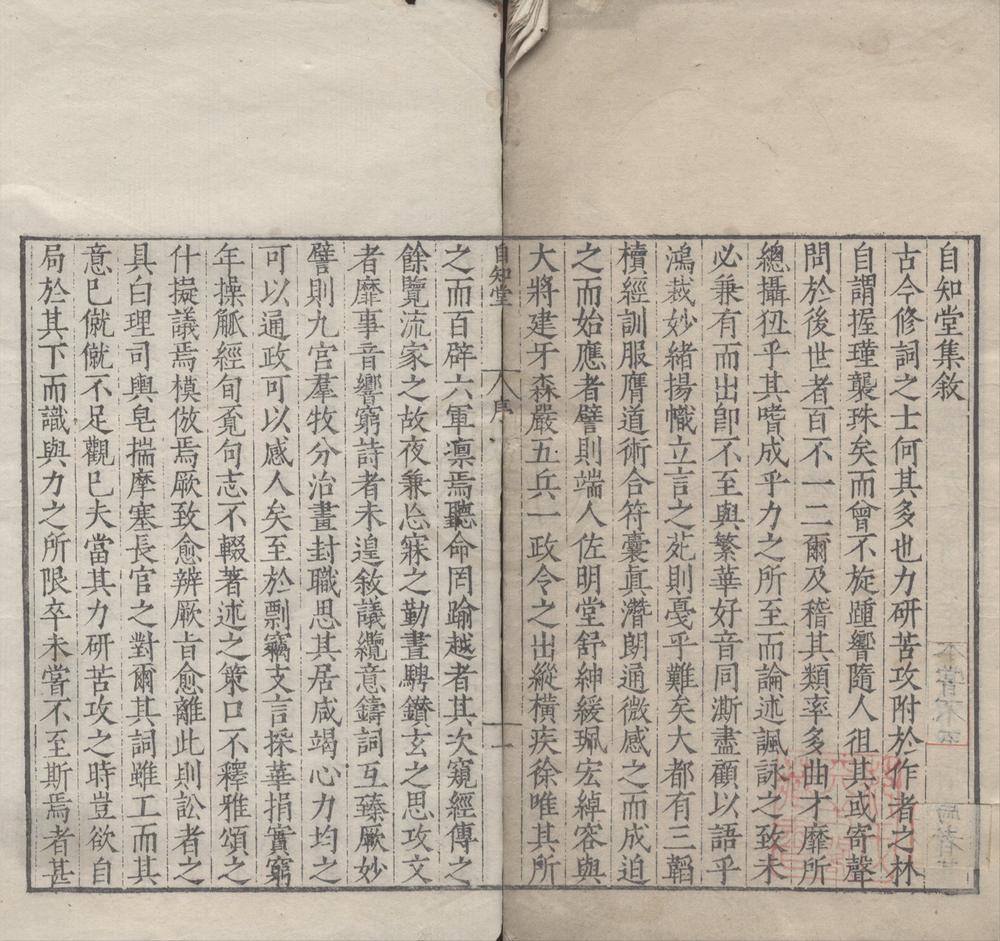 自知堂集敘
古今修詞之士何其多也力研苦攻附於作者之林
自謂握瑾襲珠矣而會不旋踵響隨人徂其或寄聲
問於後世者百不一二爾及稽其類率多曲才靡所
總攝狃乎其嗜成乎力之所至而論述諷詠之致未
必兼有而出卽不至與繁華好音同澌盡顧以語乎
鴻裁妙緒揚幟立言之苑則戞乎難矣大都有三韜
櫝經訓服膺道術合符囊眞潛朗通微感之而成迫
之而始應者譬則端人佐明堂舒紳緩珮宏綽容與
大將建牙森嚴五兵一政令之出縱橫疾徐唯其所
自知堂 序 一
之而百辟六軍凛焉聽命罔踰越者其次窺經傳之
餘覽流家之故夜兼忘寐之勤晝騁鑽玄之思攻文
者靡事音響窮詩者未遑敘議纜意鑄詞互臻厥妙
譬則九宮羣牧分治畫封職思其居咸竭心力均之
可以通政可以感人矣至於剽竊支言採華捐實窮
年操觚經旬覔句志不輟著述之策口不釋雅頌之
什擬議焉模倣焉厥致愈辨厥旨愈離此則訟者之
具白理司輿皂揣摩塞長官之對爾其詞雖工而其
意已僦僦不足觀已夫當其力研苦攻之時豈欲自
局於其下而識與力之所限卒未嘗不至斯焉者甚